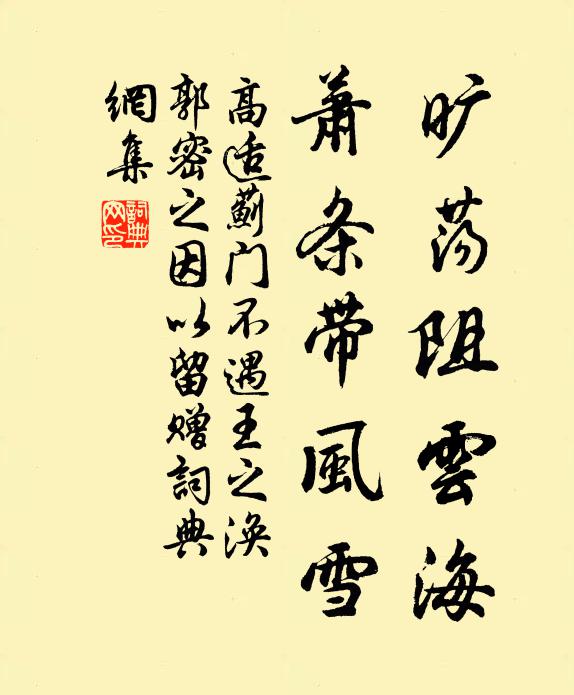 旷荡阻雲海
萧条带風雪
高适蓟门不遇王之涣
郭密之因以留赠詞典
網集
詞典網印